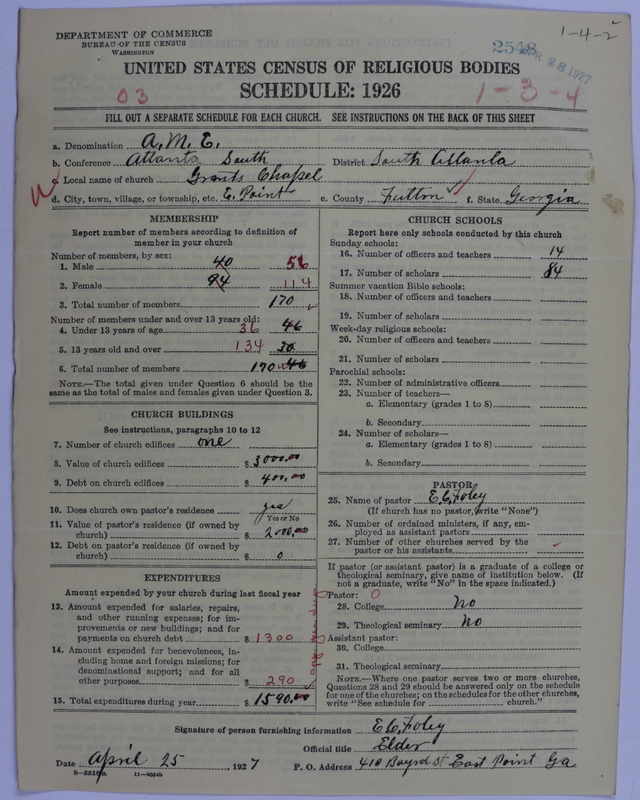 DEPARTMENT OF COMMERCE
BUREAU OF THE CENSUS
WASHINGTON
1-4-2
2548
APR 28 1927
UNITED STATES CENSUS OF RELIGIOUS BODIES
03
SCHEDULE: 1926
1-3-4
FILL OUT A SEPARATE SCHEDULE FOR EACH CHURCH. SEE INSTRUCTIONS ON THE BACK OF THIS SHEET
a. Denomination A.M.E.
b. Conference Atlanta South District South Atlanta
c. Local name of church Grants Chapel
d. City, town, village, or township, etc. E. Point e. County Fulton f. State Georgia
MEMBERSHIP
Report number of members according to definition of
member in your church
Number of members, by sex:
1. Male 40 56
2. Female 94 114
3. Total number of members 170
Number of members under and over 13 years old:
4. Under 13 years of age 36 46
5. 13 years old and over 134 30
6. Total number of members 170 46
NOTE.—The total given under Question 6 should be the
same as the total of males and females given under Question 3.
CHURCH BUILDINGS
See instructions, paragraphs 10 to 12
7. Number of church edifices one
8. Value of church edifices $ 3000.00
9. Debt on church edifices $ 400.00
10. Does church own pastor's residence yes
Yes or No
11. Value of pastor's residence (if owned by
church) $ 2000.00
12. Debt on pastor's residence (if owned by
church) $ 0
EXPENDITURES
Amount expended by your church during last fiscal year
13. Amount expended for salaries, repairs,
and other running expenses; for im-
provements or new buildings; and for
payments on church debt $ 1300
14. Amount expended for benevolences, in-
cluding home and foreign missions; for
denominational support; and for all
other purposes $ 290
15. Total expenditures during year $ 1590.00
CHURCH SCHOOLS
Report here only schools conducted by this church
Sunday schools:
16. Number of officers and teachers 14
17. Number of scholars 84
Summer vacation Bible schools:
18. Number of officers and teachers
19. Number of scholars
Week-day religious schools:
20. Number of officers and teachers
21. Number of scholars
Parochial schools:
22. Number of administrative officers
23. Number of teachers—
a. Elementary (grades 1 to 8)
b. Secondary
24. Number of scholars—
a. Elementary (grades 1 to 8)
b. Secondary
PASTOR
25. Name of pastor E.C. Foley
(If church has no pastor, write "None")
26. Number of ordained ministers, if any, em-
ployed as assistant pastors
27. Number of other churches served by the
pastor or his assistants
If pastor (or assistant pastor) is a graduate of a college or
theological seminary, give name of institution below. (If
not a graduate, write "No" in the space indicated.)
Pastor: 0
28. College No
29. Theological seminary No
Assistant pastor:
30. College
31. Theological seminary
NOTE.—Where one pastor serves two or more churches,
Questions 28 and 29 should be answered only on the schedule
for one of the churches; on the schedules for the other churches,
write "See schedule for church."
Signature of person furnishing information E.C. Foley
Official title Elder
Date April 25, 1927 P. O. Address 410 Bayrd st East Point Ga
8—5515a 11—9054b